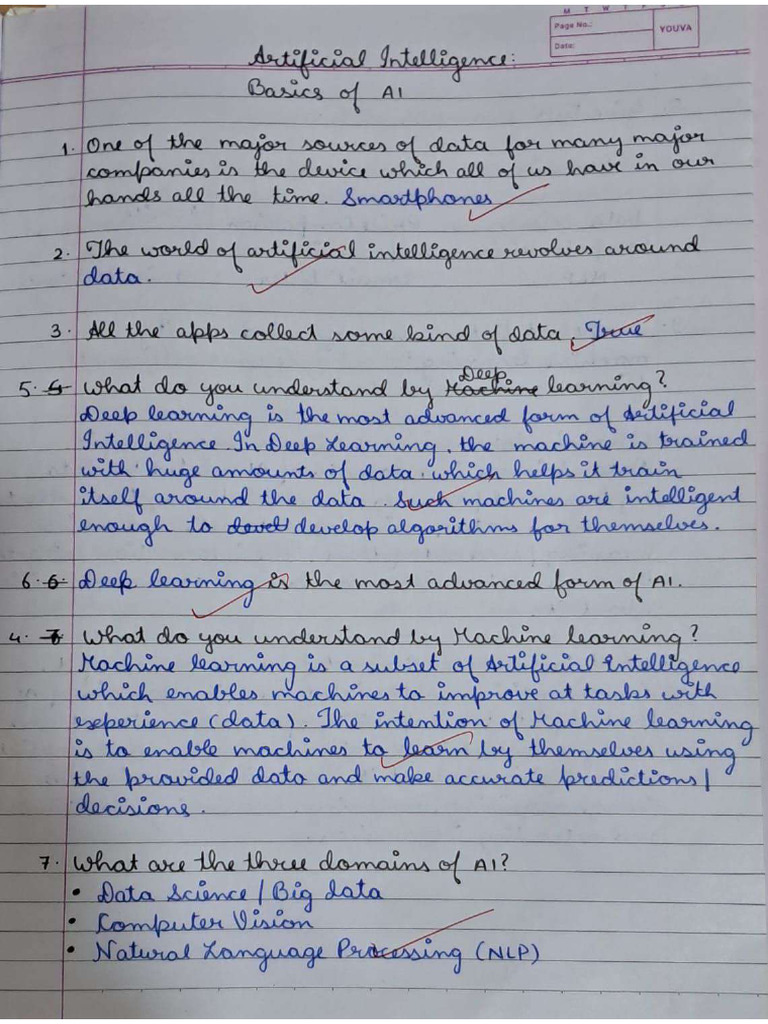 M T W T F S
Page No.:
YOUVA
Date:
Artificial Intelligence:
Basics of AI
1. One of the major sources of data for many major
companies is the device which all of us have in our
hands all the time. Smartphones
2. The world of artificial intelligence revolves around
data.
3. All the apps collect some kind of data. True
Deep
5. What do you understand by Machine learning?
Deep learning is the most advanced form of Artificial
Intelligence. In Deep Learning, the machine is trained
with huge amounts of data which helps it train
itself around the data. Such machines are intelligent
enough to devel develop algorithms for themselves.
6. 6. Deep learning is the most advanced form of AI.
4. 7. What do you understand by Machine learning?
Machine learning is a subset of Artificial Intelligence
which enables machines to improve at tasks with
experience (data). The intention of Machine learning
is to enable machines to learn by themselves using
the provided data and make accurate predictions/
decisions.
7. What are the three domains of AI?
• Data Science / Big data
• Computer Vision
• Natural Language Processing (NLP)